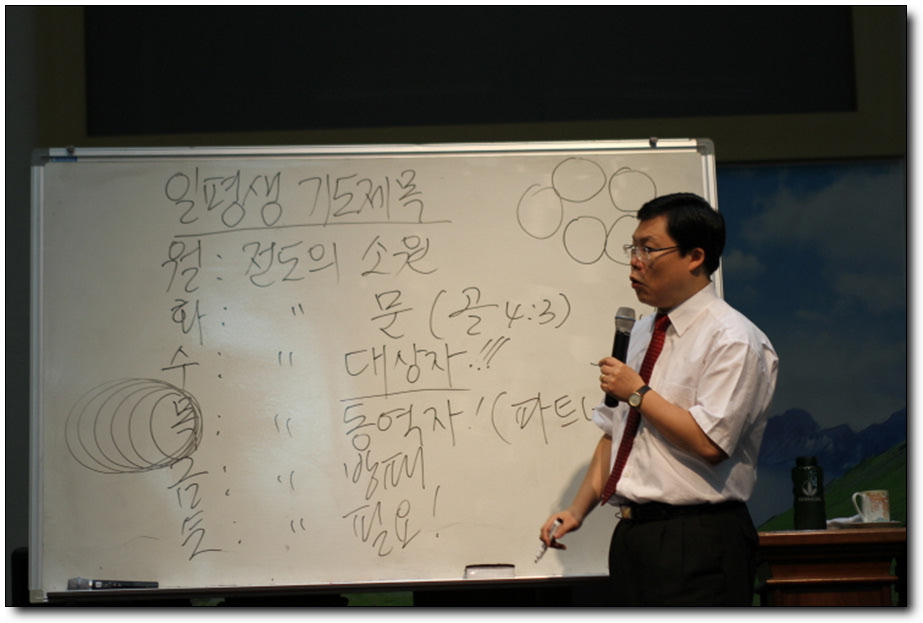 일평생 기도제목
월 : 전도의 소원
화 : " 문 (골 4:3)
수 : " 대상자!!!
목 : " 동역자! (파트
금 : " 방패
토 : " 필요!